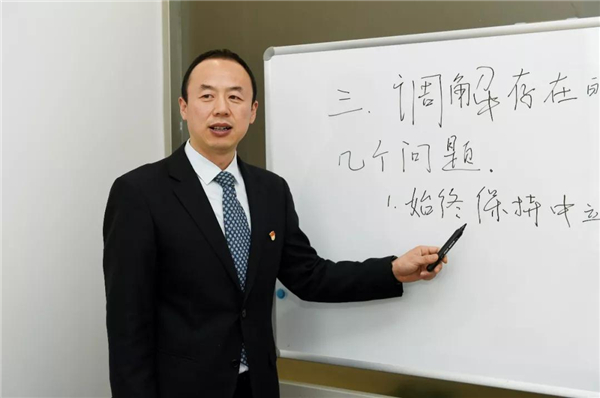 三.调解存在的
几个问题.
1.始终保持中立